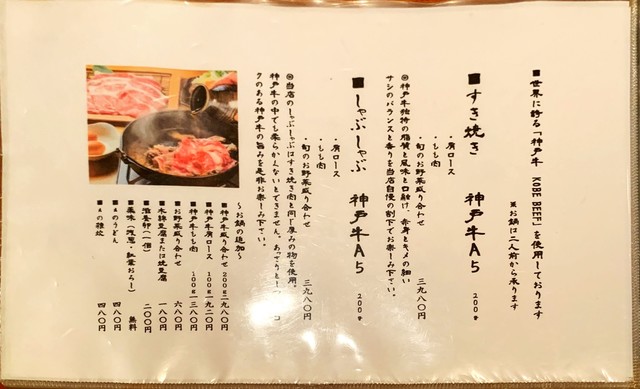 ■世界に誇る「神戸牛 KOBE BEEF」を使用しております
※お鍋は二人前から承ります
■すき焼き 神戸牛A5 200g
・肩ロース
・もも肉
・旬のお野菜盛り合わせ
三九八〇円
◎神戸牛独特の脂質と風味と口融け、赤身とキメの細い
サシのバランスと香りを当店自慢の割下でお楽しみ下さい。
■しゃぶしゃぶ 神戸牛A5 200g
・肩ロース
・もも肉
・旬のお野菜盛り合わせ
三九八〇円
◎当店のしゃぶしゃぶはすき焼き肉と同じ厚みの物を使用
神戸牛の中でも柔らかくないとできません。あっさりとし コ
クのある神戸牛の旨みを是非お楽しみ下さい。
~お鍋の追加~
■神戸牛盛り合わせ 200g 二九八〇円
■神戸牛肩ロース 100g 一九二〇円
■神戸牛もも肉 100g 一三八〇円
■お野菜盛り合わせ 六八〇円
■木綿豆腐または焼豆腐 一八〇円
■滋養卵(一個) 二〇〇円
■薬味 無料
■〆のうどん 四八〇円
■〆の雑炊 四八〇円